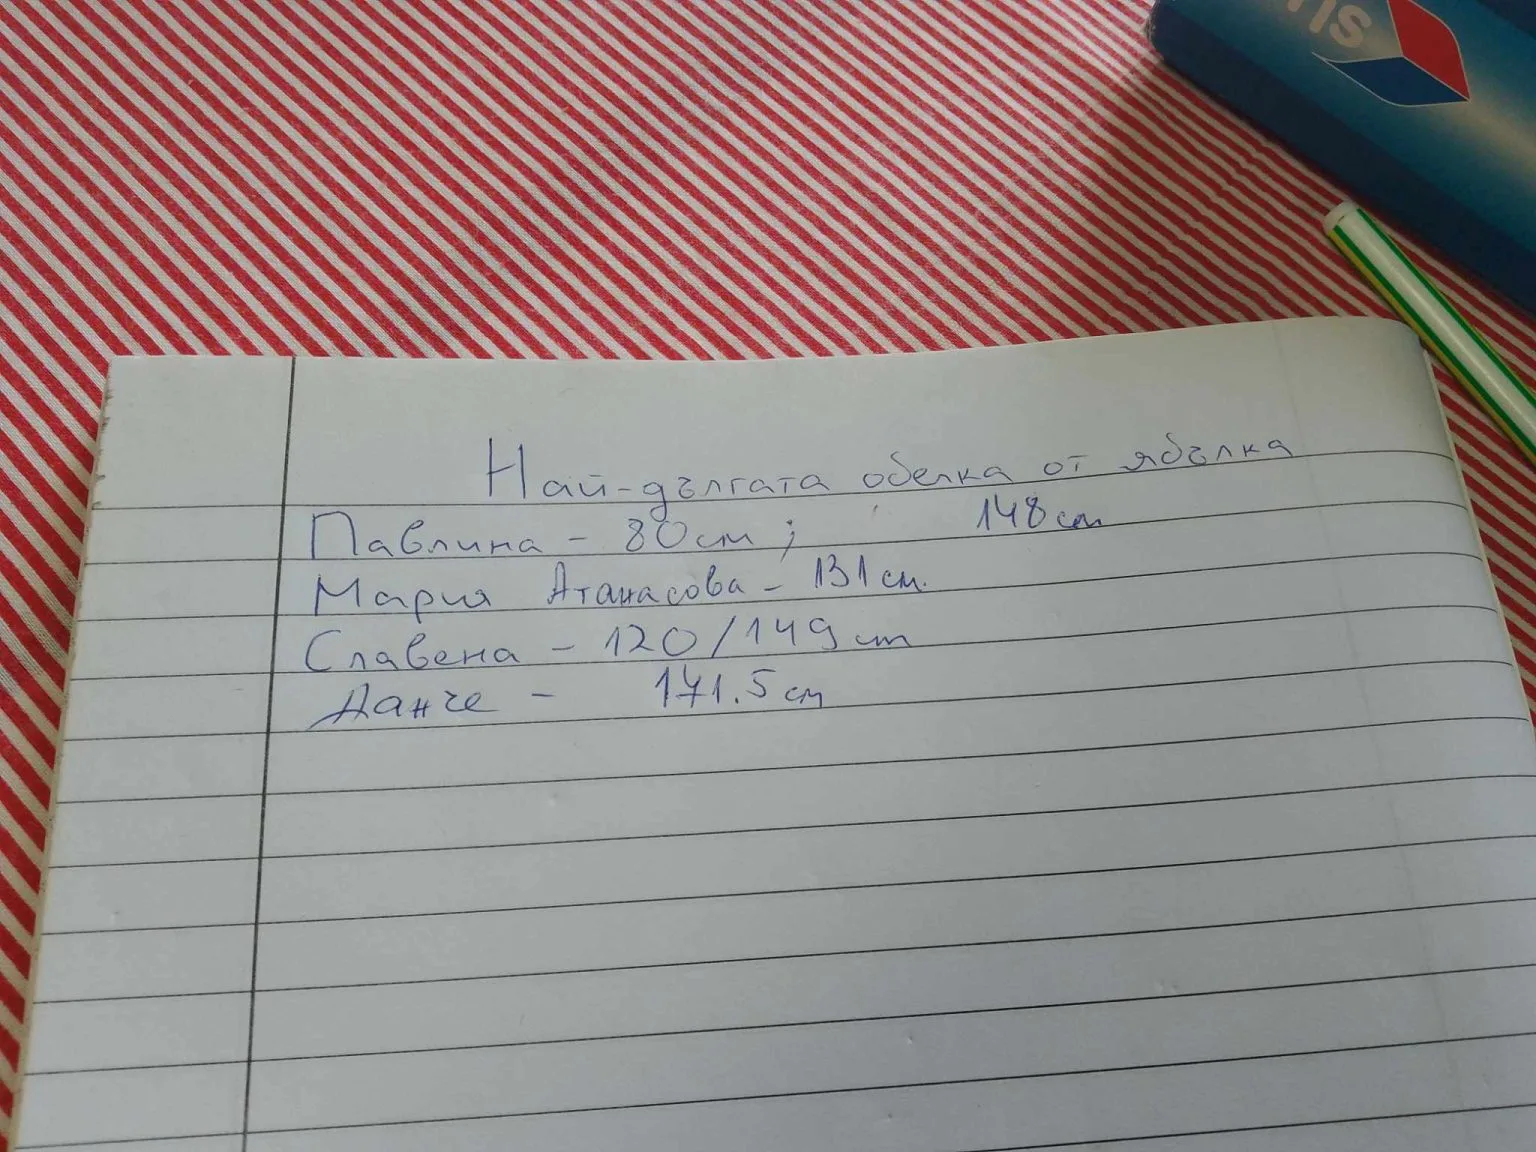 Най-дългата обелка от ябълка
Павлина - 80см; 148см
Мария Атанасова - 131см.
Славена - 120/149см
Данче - 171.5см